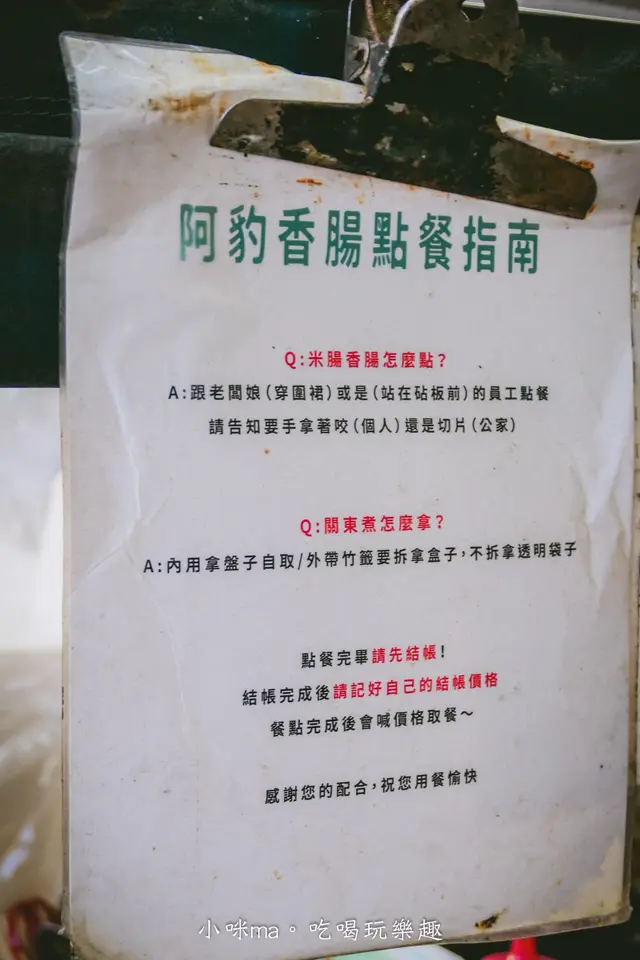 阿豹香腸點餐指南
Q:米腸香腸怎麼點?
A:跟老闆娘(穿圍裙)或是(站在砧板前)的員工點餐
請告知要手拿著咬(個人)還是切片(公家)
Q:關東煮怎麼拿?
A:內用拿盤子自取/外帶竹籤要拆拿盒子,不拆拿透明袋子
點餐完畢請先結帳!
結帳完成後請記好自己的結帳價格
餐點完成後會喊價格取餐～
感謝您的配合,祝您用餐愉快
小咪ma。吃喝玩樂趣